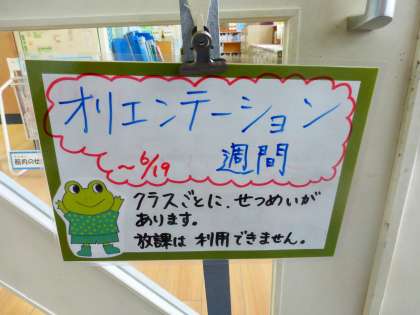 オリエンテーション
～6/19 週間
クラスごとに、せつめいが
あります。
放課は 利用できません。
館内のせ